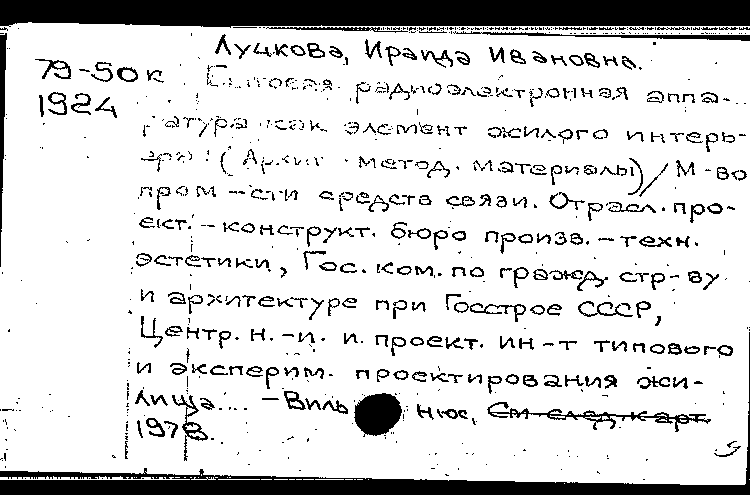 Луцкова, Ираида Ивановна.
79-50к Бытовая радиоэлектронная аппа-
1924
ратура как элемент жилого интерь-
ера : (Архит. метод. материалы) / М-во
пром-сти средств связи. Отрасл. про-
ект.-конструкт. бюро произв.-техн.
эстетики, Гос. ком. по гражд. стр-ву
и архитектуре при Госстрое СССР,
Центр. н.-и. и проект. ин-т типового
и эксперим. проектирования жи-
лища... - Вильнюс, См след. карт.
1978.